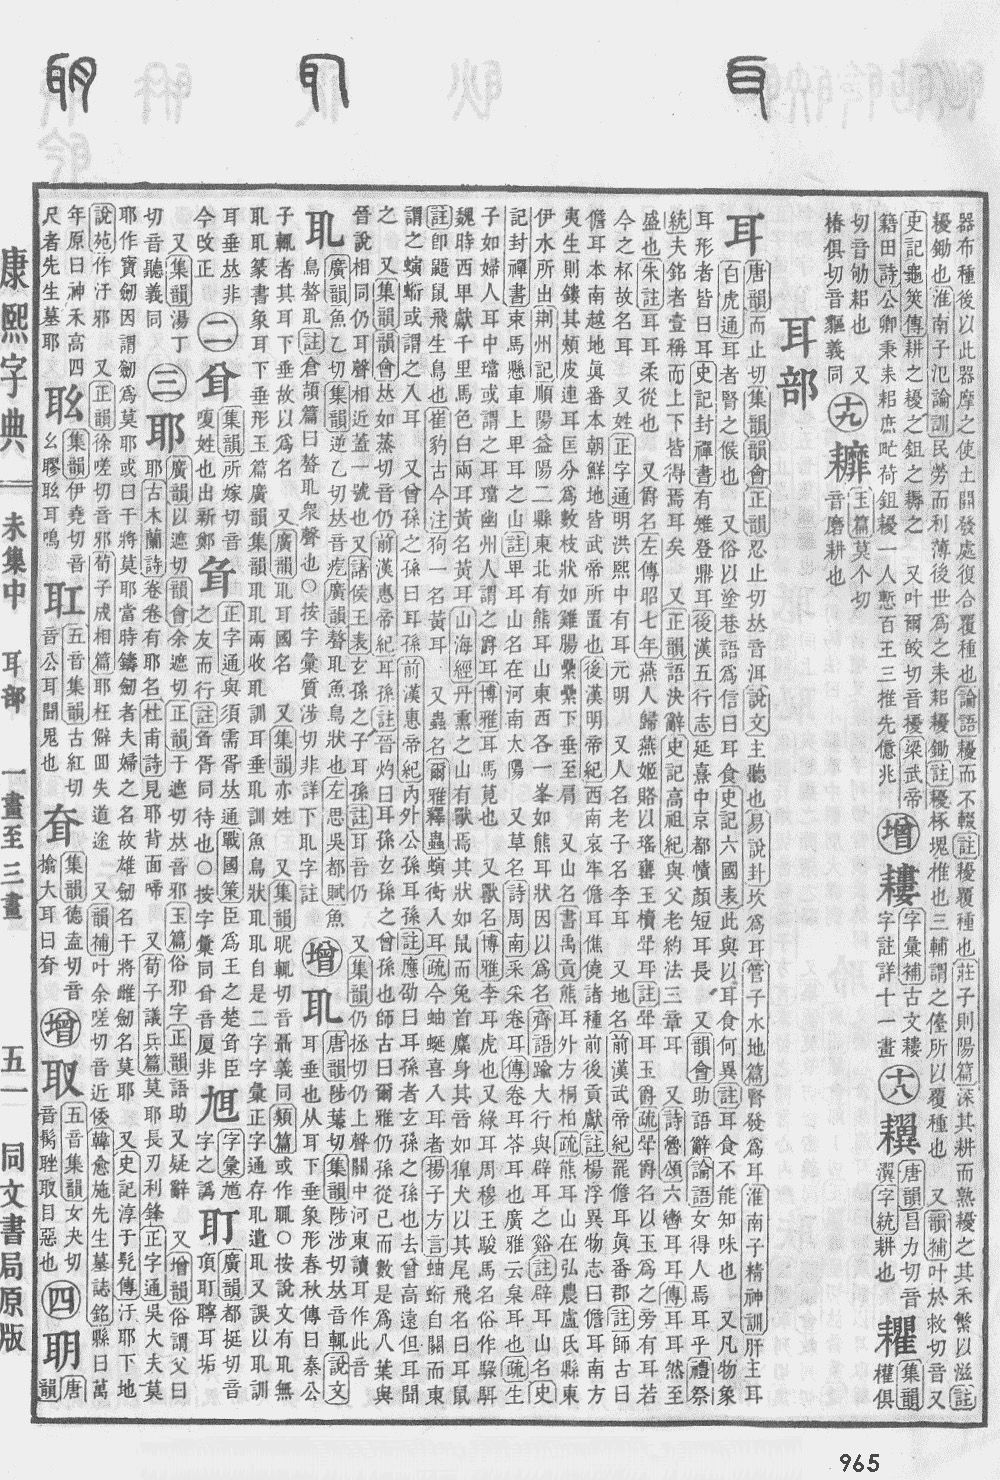 器布種後以此器摩之使土開發處復合覆種也論語耰而不輟註耰覆種也莊子則陽篇深其耕而熟耰之其禾繁以滋註
耰鋤也淮南子氾論訓民勞而利薄後世爲之耒耜耰鋤註耰椓塊椎也三輔謂之儓所以覆種也 又韻補叶於救切音又
史記龜筴傳耕之耰之鉏之耨之 又叶爾皎切音擾梁武帝
籍田詩公卿秉耒耜庶甿荷鉏耰一人慙百王三推先億兆
切音勛耜也 又
椿俱切音驅義同
十九
耱
玉篇莫个切
音磨耕也
增
耬
字彙補古文耬
字註詳十一畫
十八
唐韻昌力切音
瀷字統耕也
集韻
權俱
耳部
耳
唐韻而止切集韻韻會正韻忍止切𠀤音洱說文主聽也易說卦坎爲耳管子水地篇腎發爲耳淮南子精神訓肝主耳
白虎通耳者腎之候也 又俗以塗巷語爲信曰耳食史記六國表此與以耳食何異註耳食不能知味也 又凡物象
耳形者皆曰耳史記封禪書有雉登鼎耳後漢五行志延熹中京都幘顏短耳長 又韻會助語辭論語女得人焉耳乎禮祭
統夫銘者壹稱而上下皆得焉耳矣 又正韻語決辭史記高祖紀與父老約法三章耳 又詩魯頌六轡耳耳傳耳耳然至
盛也朱註耳耳柔從也 又爵名左傳昭七年燕人歸燕姬賂以瑤罋玉櫝斝耳註斝耳玉爵疏斝爵名以玉爲之旁有耳若
今之杯故名耳 又姓正字通明洪熙中有耳元明 又人名老子名李耳 又地名前漢武帝紀罷儋耳眞番郡註師古曰
儋耳本南越地眞番本朝鮮地皆武帝所置也後漢明帝紀西南哀牢儋耳僬僥諸種前後貢獻註楊浮異物志曰儋耳南方
夷生則鏤其頰皮連耳匡分爲數枝狀如雞腸纍纍下垂至肩 又山名書禹貢熊耳外方桐柏疏熊耳山在弘農盧氏縣東
伊水所出荆州記順陽益陽二縣東北有熊耳山東西各一峯如熊耳狀因以爲名齊語踰大行與辟耳之谿註辟耳山名史
記封禪書束馬懸車上卑耳之山註卑耳山名在河南太陽 又草名詩周南采采卷耳傳卷耳苓耳也廣雅云枲耳也疏生
子如婦人耳中璫或謂之耳璫幽州人謂之爵耳博雅耳馬莧也 又獸名博雅李耳虎也又綠耳周穆王駿馬名俗作騄駬
魏時西卑獻千里馬色白兩耳黃名黃耳山海經丹熏之山有獸焉其狀如鼠而兔首麋身其音如獆犬以其尾飛名曰耳鼠
註卽鼯鼠飛生鳥也崔豹古今注狗一名黃耳 又蟲名爾雅釋蟲螾衝入耳疏今蚰蜒喜入耳者揚子方言蚰蜒自關而東
謂之螾蜒或謂之入耳 又曾孫之孫曰耳孫前漢惠帝紀內外公孫耳孫註應劭曰耳孫者玄孫之子也去曾高遠但耳聞
之 又集韻韻會𠀤如蒸切音仍前漢惠帝紀耳孫註晉灼曰耳孫玄孫之曾孫也師古曰爾雅仍孫從己而數是爲八葉與
晉說相同仍耳聲相近蓋一號也又諸侯王表玄孫之子耳孫註耳音仍 又集韻仍拯切仍上聲關中河東讀耳作此音
耴
廣韻魚乙切集韻逆乙切𠀤音疙廣韻聲耴魚鳥狀也左思吳都賦魚
鳥聱耴註倉頡篇曰聱耴衆聲也○按字彙質涉切非詳下耴字註
增
耴
唐韻陟葉切集韻陟涉切𠀤音輒說文
耳垂也从耳下垂象形春秋傳曰秦公
子輒者其耳下垂故以爲名 又廣韻耴耳國名 又集韻亦姓 又集韻昵輒切音聶義同類篇或作䎳○按說文有耴無
耴耴篆書象耳下垂形玉篇廣韻集韻耴耴兩收耴訓耳垂耴訓魚鳥狀耴耴自是二字字彙正字通存耴遺耴又誤以耴訓
耳垂𠀤非
今改正
二
集韻所嫁切音
嗄姓也出新鄭
正字通與須需胥𠀤通戰國策臣爲王之楚
之友而行註
字彙尯
字之譌
耵
廣韻都挺切音
頂耵聹耳垢
又集韻湯丁
切音聽義同
三
耶
廣韻以遮切韻會余遮切正韻于遮切𠀤音邪玉篇俗邪字正韻語助又疑辭 又增韻俗謂父曰
耶古木蘭詩卷卷有耶名杜甫詩見耶背面啼 又荀子議兵篇莫耶長刃利鋒正字通吳大夫莫
耶作寶劒因謂劒爲莫耶或曰干將莫耶當時鑄劒者夫婦之名故雄劒名干將雌劒名莫耶 又史記淳于髡傳汙耶下地
說苑作汙邪 又正韻徐嗟切音邪荀子成相篇耶枉僻囬失道途 又韻補叶余嗟切音近倭韓愈施先生墓誌銘縣曰萬
年原曰神禾高四
尺者先生墓耶
集韻伊堯切音
幺䏆耴耳鳴
耾
五音集韻古紅切
音公耳聞鬼也
集韻德盍切音
搚大耳曰
增
取
五音集韻女夬切
音 取目惡也
四
唐
韻
康熙字典
未集中 耳部 一畫至三畫
五一
同文書局原版
965